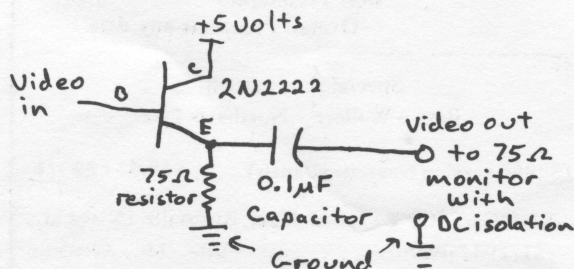 +5 volts
C
2N2222
Video
in
B
E
75Ω
resistor
0.1µF
Capacitor
Video out
to 75Ω
monitor
with
DC isolation
Ground